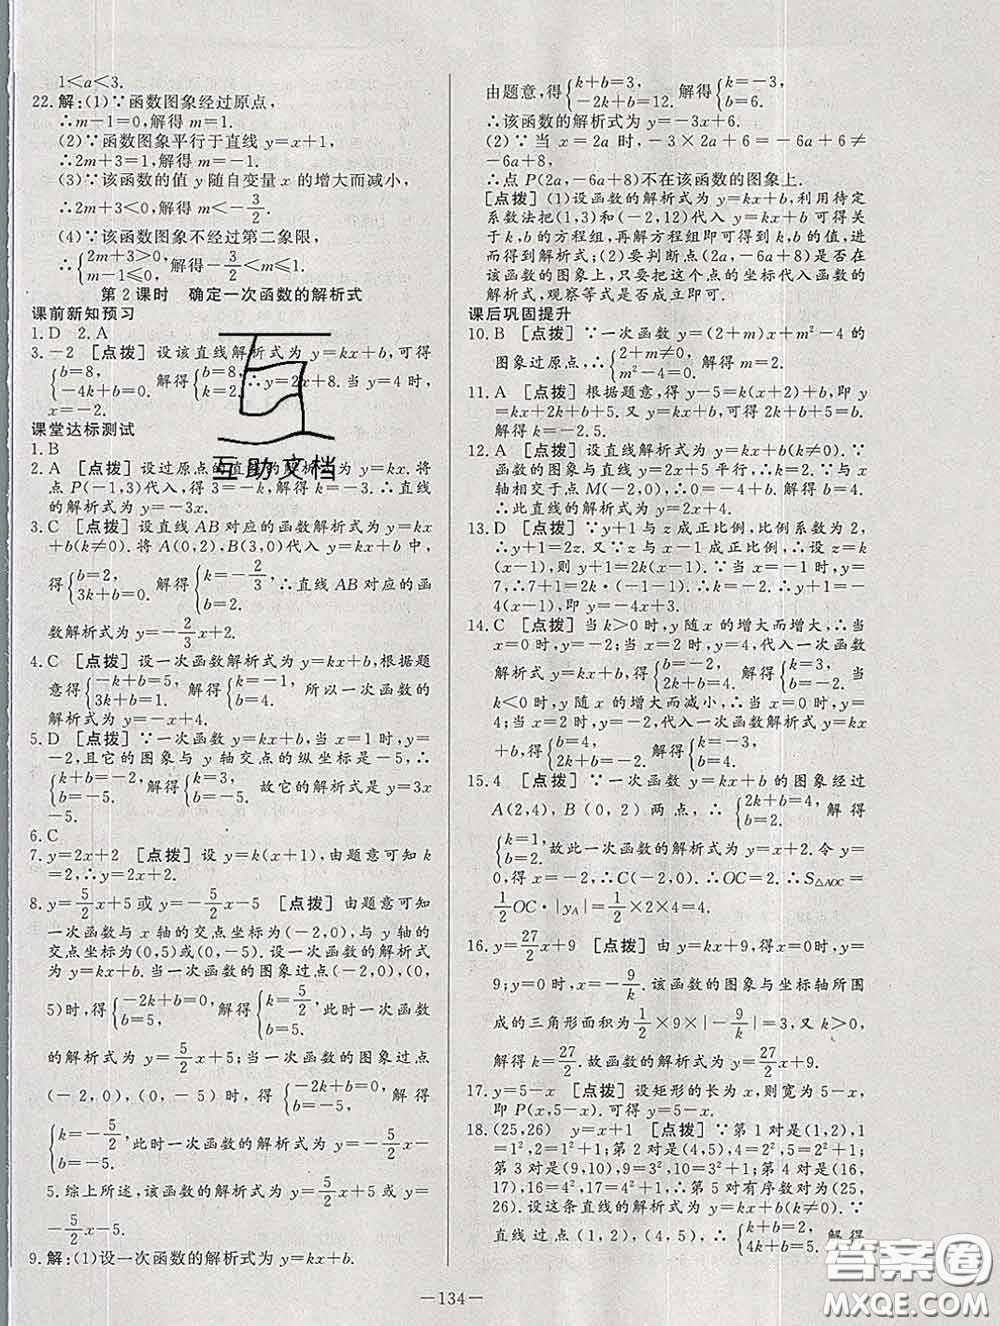 1<a<3.
22.解:(1)∵函数图象经过原点,
∴m-1=0,解得 m=1.
(2)∵函数图象平行于直线 y=x+1,
∴2m+3=1,解得 m=-1.
(3)∵该函数的值 y 随自变量 x 的增大而减小,
∴2m+3<0,解得 m<-3/2.
(4)∵该函数图象不经过第二象限,
∴{2m+3>0, m-1≤0, 解得-3/2<m≤1.
第2课时 确定一次函数的解析式
课前新知预习
1.D 2.A
3.-2 [点拨]设该直线解析式为 y=kx+b,可得
{b=8, -4k+b=0. 解得{b=8, ∴y=2x+8.当 y=4 时,
x=-2.
课堂达标测试
1.B
2.A [点拨]设过原点的直线的解析式为 y=kx.将
点 P(-1,3)代入,得 3=-k,解得 k=-3.∴直线
的解析式为 y=-3x.
3.C [点拨]设直线 AB 对应的函数解析式为 y=kx
+b(k≠0).将 A(0,2),B(3,0)代入 y=kx+b 中,
得{b=2, 3k+b=0. 解得{k=-2/3, b=2. ∴直线 AB 对应的函
数解析式为 y=-2/3x+2.
4.C [点拨]设一次函数解析式为 y=kx+b,根据题
意得{-k+b=5, 3k+b=1. 解得{k=-1, b=4. 所以一次函数的
解析式为 y=-x+4.
5.D [点拨]∵一次函数 y=kx+b,当 x=1 时,y=
-2,且它的图象与 y 轴交点的纵坐标为-5,∴
{k+b=-2, b=-5. 解得{k=3, b=-5. 故它的解析式为 y=3x
-5.
6.C
7.y=2x+2 [点拨]设 y=k(x+1),由题意可知 k
=2,∴y=2x+2.
8.y=5/2x+5或y=-5/2x-5 [点拨]由题意可知
一次函数与 x 轴的交点坐标为(-2,0),与 y 轴的
交点坐标为(0,5)或(0,-5).设一次函数的解析式
为 y=kx+b.当一次函数的图象过点(-2,0),(0,
5)时,得{-2k+b=0, b=5, 解得{k=5/2, b=5. 此时一次函数
的解析式为 y=5/2x+5;当一次函数的图象过点
(-2,0),(0,-5)时,得{-2k+b=0, b=-5. 解得
{k=-5/2, b=-5. 此时一次函数的解析式为 y=-5/2x-
5.综上所述,该函数的解析式为 y=5/2x+5 或 y=
-5/2x-5.
9.解:(1)设一次函数的解析式为 y=kx+b.
由题意,得{k+b=3, -2k+b=12. 解得{k=-3, b=6.
∴该函数的解析式为 y=-3x+6.
(2)∵当 x=2a 时,-3×2a+6=-6a+6≠
-6a+8,
∴点 P(2a,-6a+8)不在该函数的图象上.
[点拨](1)设函数的解析式为 y=kx+b,利用待定
系数法把(1,3)和(-2,12)代入 y=kx+b 可得关
于 k,b 的方程组,再解方程组即可得到 k,b 的值,进
而得到解析式;(2)要判断点(2a,-6a+8)是否在
该函数的图象上,只要把这个点的坐标代入函数的
解析式,观察等式是否成立即可.
课后巩固提升
10.B [点拨]∵一次函数 y=(2+m)x+m²-4 的
图象过原点,∴{2+m≠0, m²-4=0. 解得 m=2.
11.A [点拨]根据题意,得 y-5=k(x+2)+b,即 y
=kx+2k+b+5.又 y=kx+b,可得 2k+b+5=b.
解得 k=-2.5.
12.A [点拨]设直线解析式为 y=kx+b(k≠0).∵
函数的图象与直线 y=2x+5 平行,∴k=2.∵与 x
轴相交于点 M(-2,0),∴0=-4+b.解得 b=4.
∴此直线的解析式为 y=2x+4.
13.D [点拨]∵y+1 与 z 成正比例,比例系数为 2,
∴y+1=2z.又∵z 与 x-1 成正比例,∴设 z=k
(x-1),则 y+1=2k(x-1).∵当 x=-1 时,y=
7,∴7+1=2k·(-1-1).解得 k=-2.∴y+1=
-4(x-1),即 y=-4x+3.
14.C [点拨]当 k>0 时,y 随 x 的增大而增大,∴当 x
=0 时,y=-2;当 x=2 时,y=4,代入一次函数
解析式 y=kx+b,得{b=-2, 2k+b=4. 解得{k=3, b=-2. 当
k<0 时,y 随 x 的增大而减小,∴当 x=0 时,y=
4;当 x=2 时,y=-2,代入一次函数解析式 y=kx
+b,得{b=4, 2k+b=-2. 解得{k=-3, b=4.
15.4 [点拨]∵一次函数 y=kx+b 的图象经过
A(2,4),B(0,2)两点,∴{2k+b=4, b=2. 解得
{k=1, b=2. 故此一次函数的解析式为 y=x+2.令 y
=0,得 x=-2.∴C(-2,0).∴OC=2.∴S△AOC=
1/2OC·|yA|=1/2×2×4=4.
16.y=27/2x+9 [点拨]由 y=kx+9,得 x=0时,y=
9;y=0时,x=-9/k.该函数的图象与坐标轴所围
成的三角形面积为1/2×9×|-9/k|=3.又 k>0,
解得 k=27/2.故函数的解析式为 y=27/2x+9.
17.y=5-x [点拨]设矩形的长为 x,则宽为 5-x,
即 P(x,5-x).可得 y=5-x.
18.(25,26) y=x+1 [点拨]∵第 1 对是(1,2),
1=1²,2=1²+1;第 2 对是(4,5),4=2²,5=2²+1;
第 3 对是(9,10),9=3²,10=3²+1;第 4 对是(16,
17),16=4²,17=4²+1;∴第 5 对有序数对为(25,
26).设这条直线的解析式为 y=kx+b(k≠0).∵
直线过点(1,2),(4,5),∴{k+b=2, 4k+b=5. 解得
—134—
互助文档
答案圈
MXQE.COM